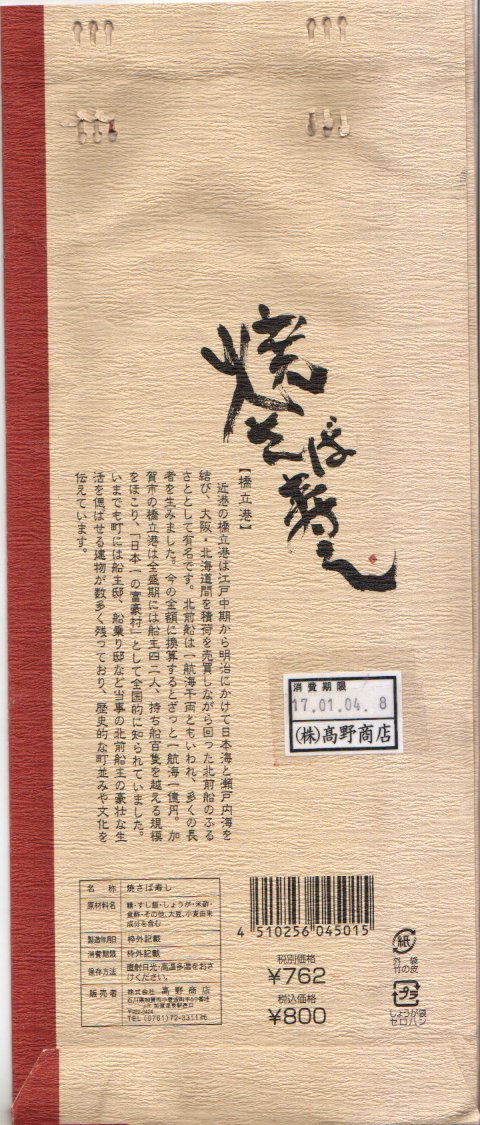 焼さば寿し
【橋立港】
近港の橋立港は江戸中期から明治にかけて日本海と瀬戸内海を
結び、大阪・北海道間を積荷を売買しながら回った北前船のふる
さととして有名です。北前船は一航海千両ともいわれ、多くの長
者を生みました。今の金額に換算するとざっと一航海一億円。加
賀市の橋立港は全盛期には船主四二人、持ち船百隻を越える規模
をほこり、「日本一の富豪村」として全国的に知られていました。
いまでも町には船主邸、船乗り邸など当事の北前船主の豪壮な生
活を偲ばせる建物が数多く残っており、歴史的な町並みや文化を
伝えています。
消費期限
17.01.04. 8
(株)髙野商店
名 称 焼さば寿し
原材料名 鯖・すし飯・しょうが・米酢・
食酢・その他、大豆、小麦由来
成分を含む
製造年月日 枠外記載
消費期限 枠外記載
保存方法 直射日光・高温多湿をおさ
けください。
販売者 株式会社 髙野商店
JR 加賀温泉駅西口
TEL (0761)72-3311㈹
4 510256 045015
税別価格
¥762
税込価格
¥800
紙
外 袋
竹の皮
プラ
しょうが袋
セロハン